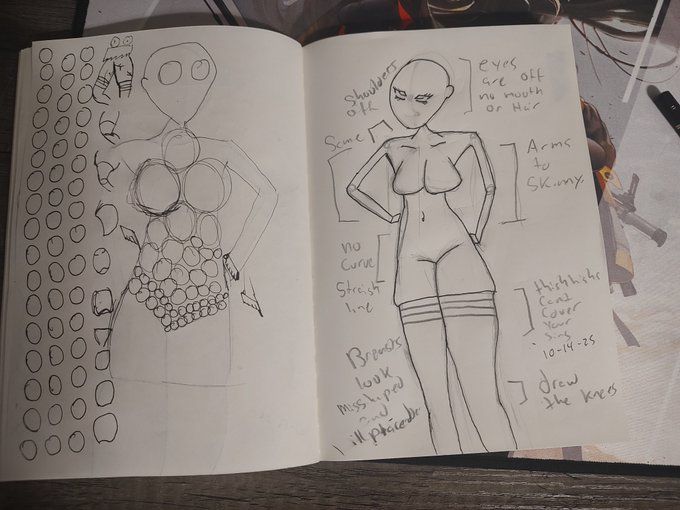 Shoulders
off
eyes
are off
no mouth
or Hair
Same
Arms
to
Skinny.
no
Curve
Straight
line
thighhighs
Cant
Cover
Your
Sins
10-14-25
Breasts
look
Misshaped
and
ill placed
draw
the knees